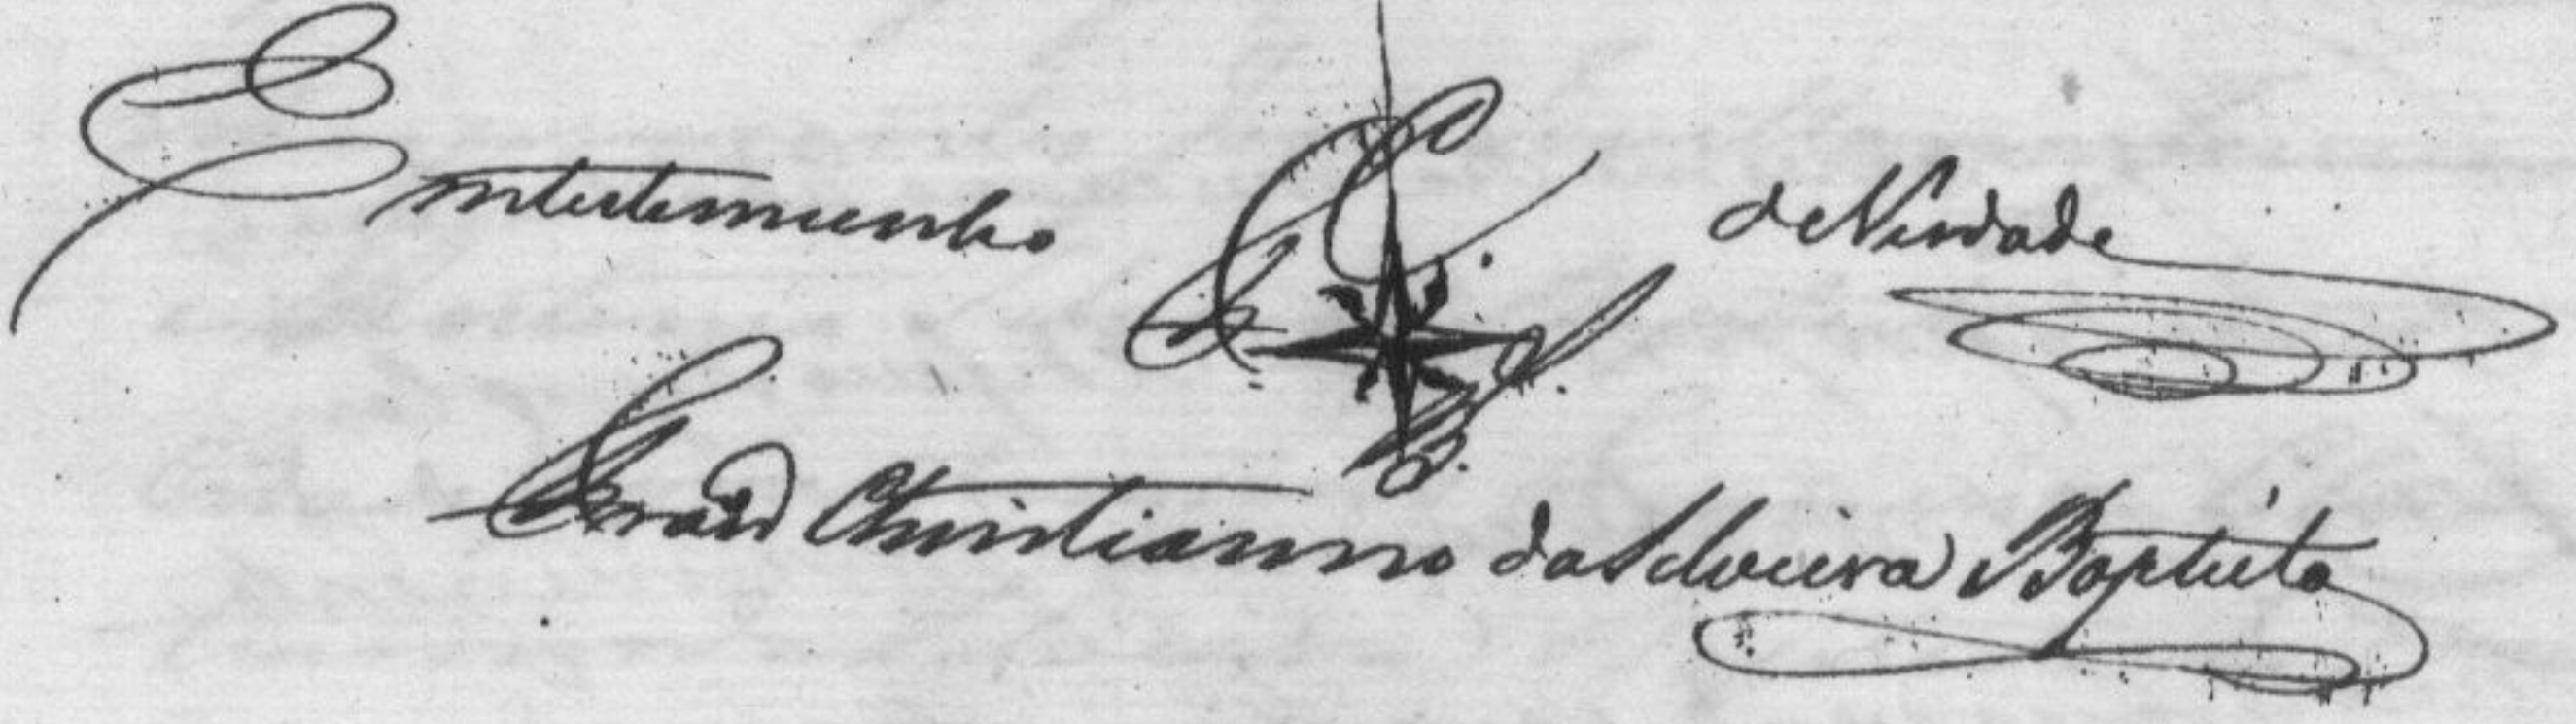 Emtestemunho de Verdade
Christianno da Silveira Baptista